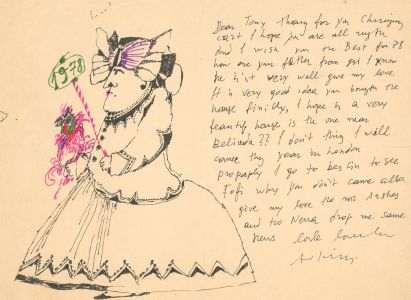 1978
Dear Tony thang for yu Charming
cart I hope yu are all rigth
and I wish you the Best for 78
how are your father from you I know
he isn't very well give my love.
It is very good idea you bougth the
house finilly, I hope is a very
beautify house is the one near
Belinda?? I don't thing I will
came this years in London
propaply I go to berlin to see
Fofi why you don't came also
give my love to mrs
and to Nena drop me same
news love